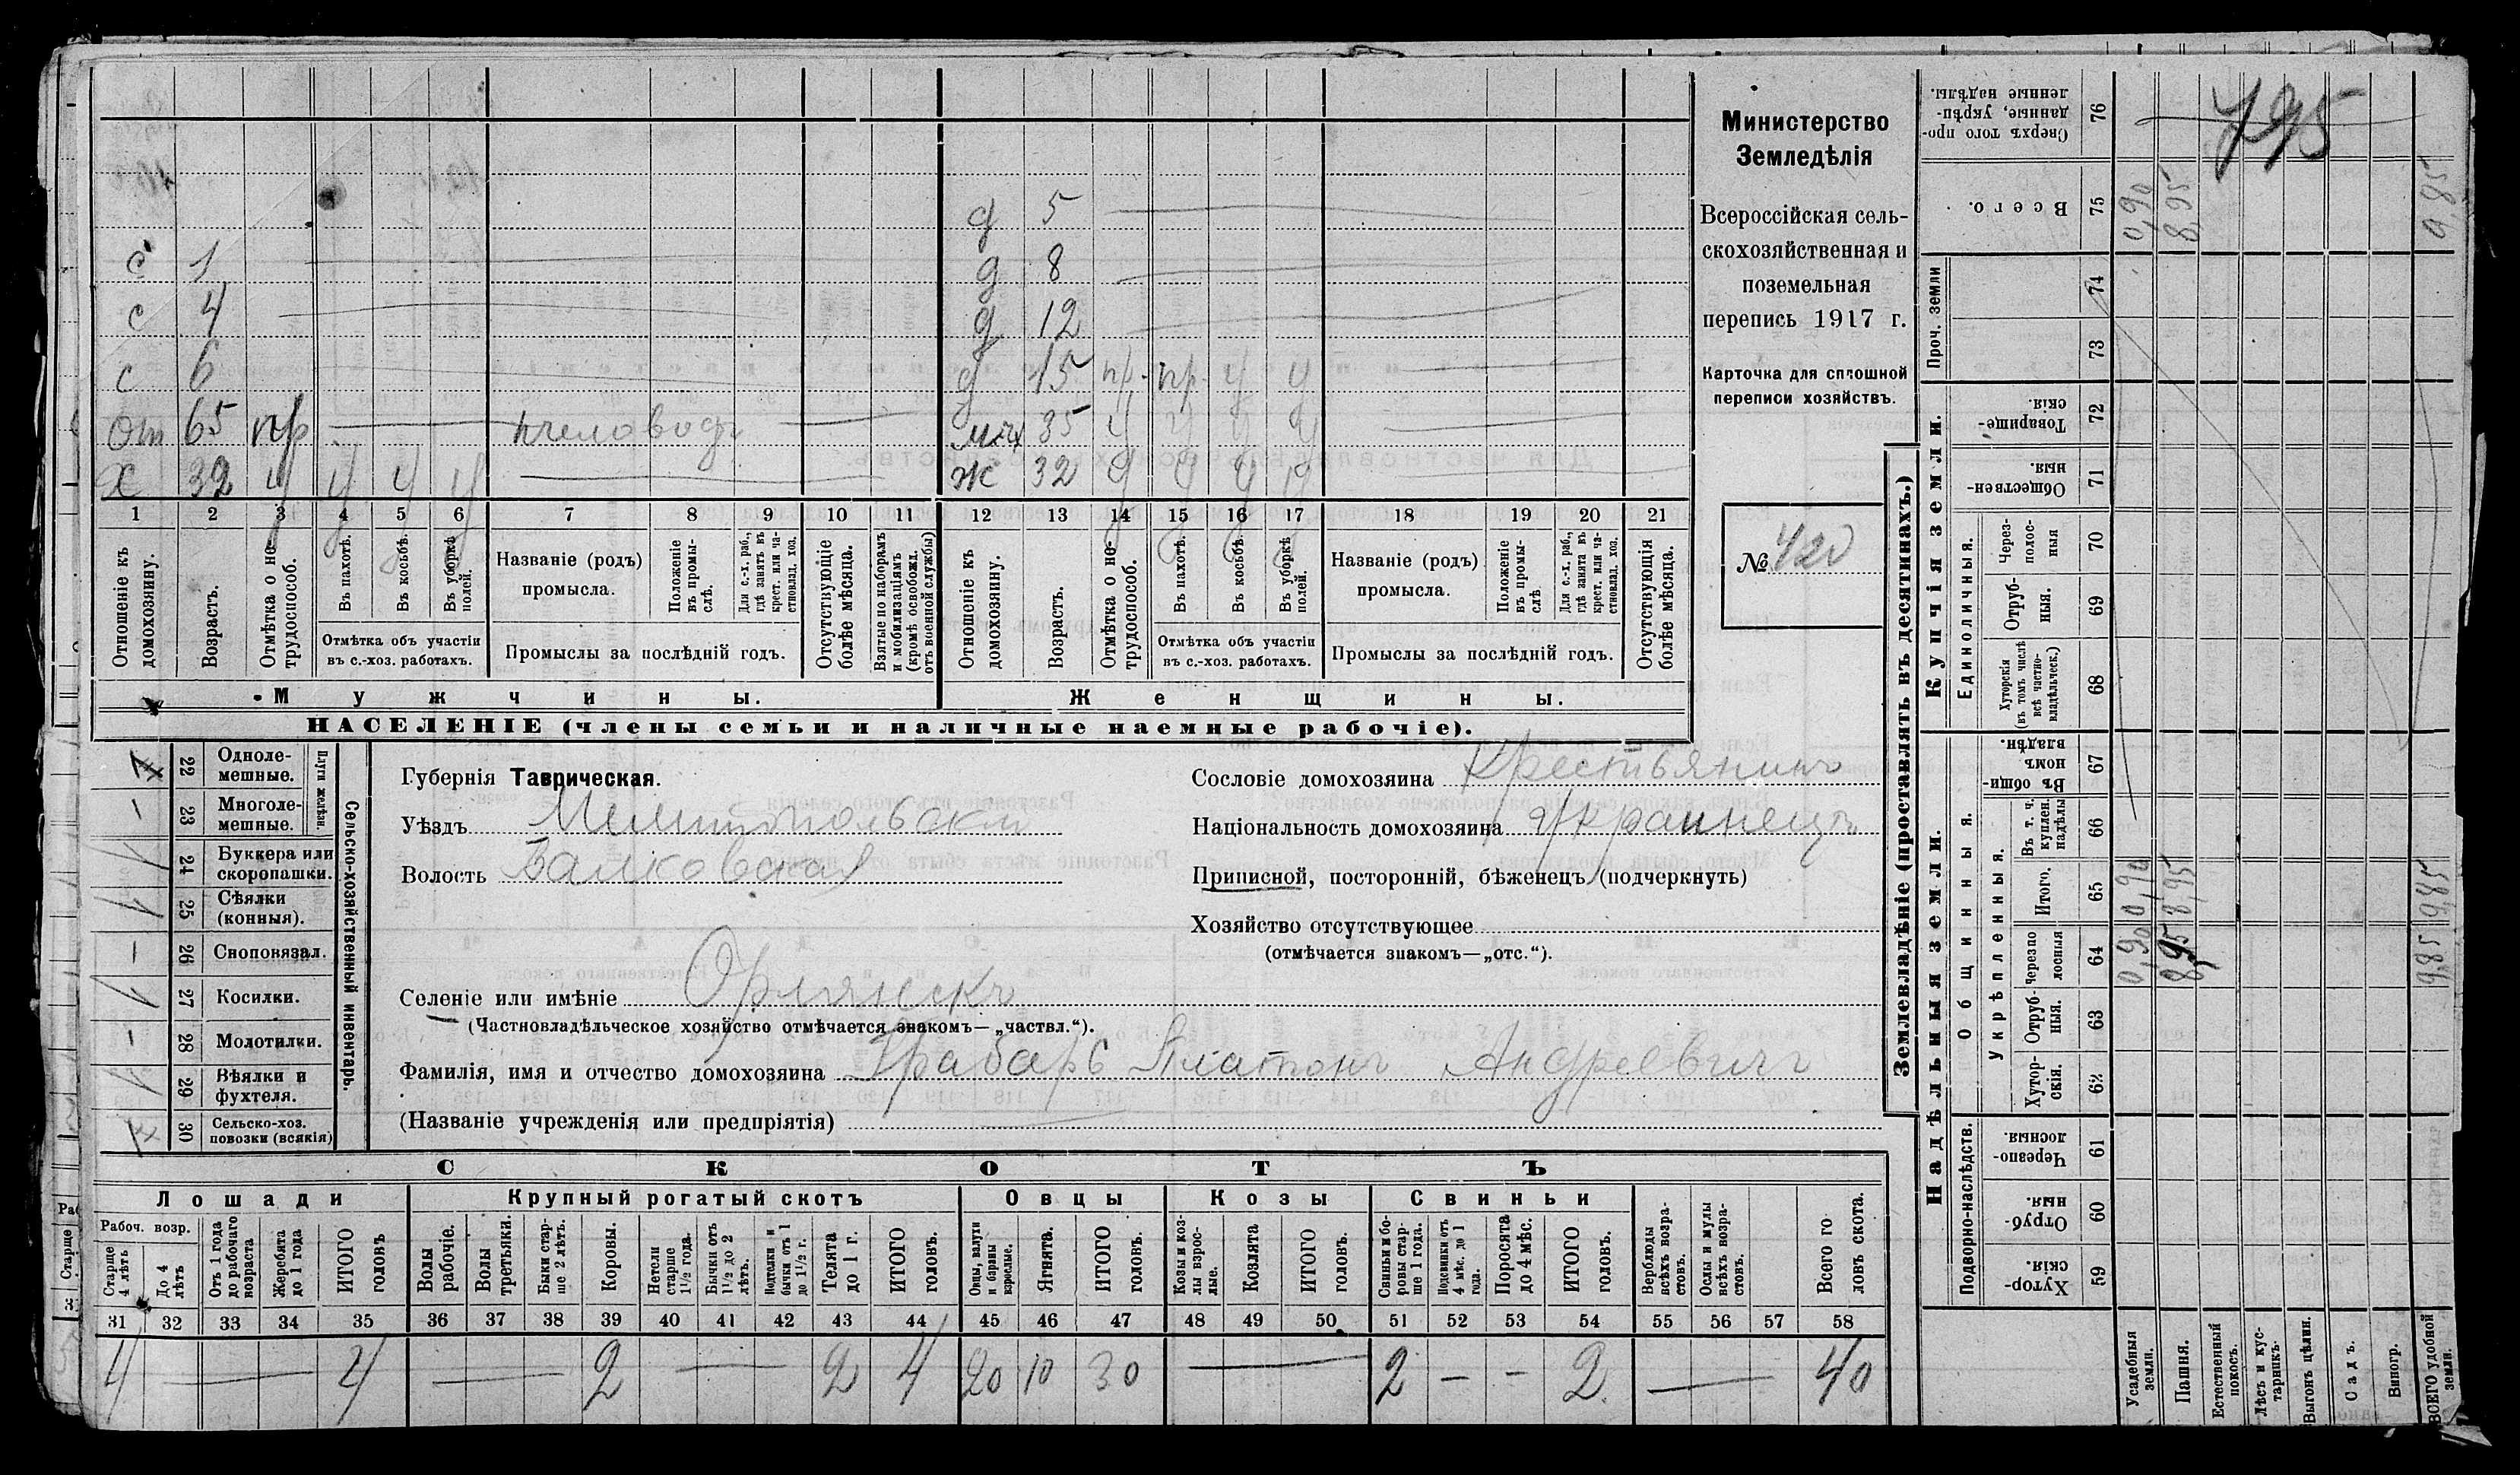 д 5
с 1 д 8
с 4 д 12
с 6 д 15 пр. пр. у у
от 65 пр пчеловодъ 35 у у у у
х 32 у у у у ж 32 у у у у
1 2 3 4 5 6 7 8 9 10 11 12 13 14 15 16 17 18 19 20 21
Отношеніе къ домохозяину.
Возрастъ.
Отмѣтка о не-трудоспособ.
Въ пахотѣ.
Въ косьбѣ.
Въ уборкѣ полей.
Отмѣтка объ участіи
въ с.-хоз. работахъ.
Названіе (родъ)
промысла.
Положеніе въ промы-слѣ.
Для с.-х. раб., гдѣ занятъ въ крест. или ча-стновлад. хоз.
Промыслы за послѣдній годъ.
Отсутствующіе болѣе мѣсяца.
Взятые по наборамъ и мобилизаціямъ (кромѣ освобожд. отъ военной службы)
Отношеніе къ домохозяину.
Возрастъ.
Отмѣтка о не-трудоспособ.
Въ пахотѣ.
Въ косьбѣ.
Въ уборкѣ полей.
Отмѣтка объ участіи
въ с.-хоз. работахъ.
Названіе (родъ)
промысла.
Положеніе въ промы-слѣ
Для с.-х. раб., гдѣ занята въ крест. или ча-стновлад. хоз.
Промыслы за послѣдній годъ.
Отсутствующія болѣе мѣсяца.
Мужчины.
Женщины.
НАСЕЛЕНІЕ (члены семьи и наличные наемные рабочіе).
Министерство
Земледѣлія
Всероссійская сель-
скохозяйственная и
поземельная
перепись 1917 г.
Карточка для сплошной
переписи хозяйствъ.
№ 420
22 Одноле-мешные.
23 Многоле-мешные.
Плуги желѣзн.
24 Буккера или скоропашки.
25 Сѣялки (конныя).
26 Сноповязал.
27 Косилки.
28 Молотилки.
29 Вѣялки и фухтеля.
30 Сельско-хоз. повозки (всякія)
Сельско-хозяйственный инвентарь.
Губернія Таврическая.
Уѣздъ Мелитопольскій
Волость Балковская
Сословіе домохозяина Крестьянинъ
Національность домохозяина Украинецъ
Приписной, посторонній, бѣженецъ (подчеркнуть)
Хозяйство отсутствующее
(отмѣчается знакомъ—„отс.“).
Селеніе или имѣніе Орлянскъ
(Частновладѣльческое хозяйство отмѣчается знакомъ—„частвл.“).
Фамилія, имя и отчество домохозяина Грабарь Платонъ Андреевичъ
(Названіе учрежденія или предпріятія)
СКОТЪ
Лошади Крупный рогатый скотъ Овцы Козы Свиньи
Рабоч. возр.
Старше 4 лѣтъ
До 4 лѣтъ
Отъ 1 года до рабочаго возраста
Жеребята до 1 года
ИТОГО головъ
Волы рабочіе.
Волы третьяки.
Быки стар-ше 2 лѣтъ.
Коровы.
Нетели старше 1½ года.
Бычки отъ 1½ до 2 лѣтъ.
бычки отъ 1 до 1½ г.
Телята до 1 г.
ИТОГО головъ.
Овцы, валухи и бараны взрослые.
Ягнята.
ИТОГО головъ.
Козы и коз-лы взрос-лые.
Козлята
ИТОГО головъ.
Свиньи и бо-ровы стар-ше 1 года.
Подсвинки отъ 4 мѣс. до 1 года.
Поросята до 4 мѣс.
ИТОГО головъ.
Верблюды всѣхъ возра-стовъ.
Ослы и мулы всѣхъ возра-стовъ.
Всего го ловъ скота.
31 32 33 34 35 36 37 38 39 40 41 42 43 44 45 46 47 48 49 50 51 52 53 54 55 56 57 58
4 — 4 — 2 — 2 4 20 10 30 — 2 — - 2. — 40
Землевладѣніе (проставлять въ десятинахъ.)
Надѣльныя земли.
Купчія земли.
Проч. земли
Сверхъ того про-данные, укрѣп-ленные надѣлы. 76
795
Всего. 75 0,90 8,95 9,85
74
73
Товарище-скія. 72
Обществен-ныя. 71
Единоличныя.
Через-полос-ныя 70
Отруб-ныя. 69
Хуторскія (въ томъ числѣ всѣ частно-владѣльческ.) 68
Общинныя.
Въ общи-номъ владѣн. 67
Укрѣпленныя.
Въ т. ч. куплен. надѣлы 66
Итого. 65 0,90 8,95 9,85
Черезпо лосныя 64 0,90 8,95 9,85
Отруб-ныя. 63
Хутор-скія. 62
Подворно-наслѣдств.
Черезпо-лосныя. 61
Отруб-ныя. 60
Хутор-скія. 59
Усадебныя земли.
Пашня.
Естественный покосъ.
Лѣсъ и кус-тарникъ.
Выгонъ цѣлин.
Садъ.
Виногр.
ВСЕГО удобной земли.